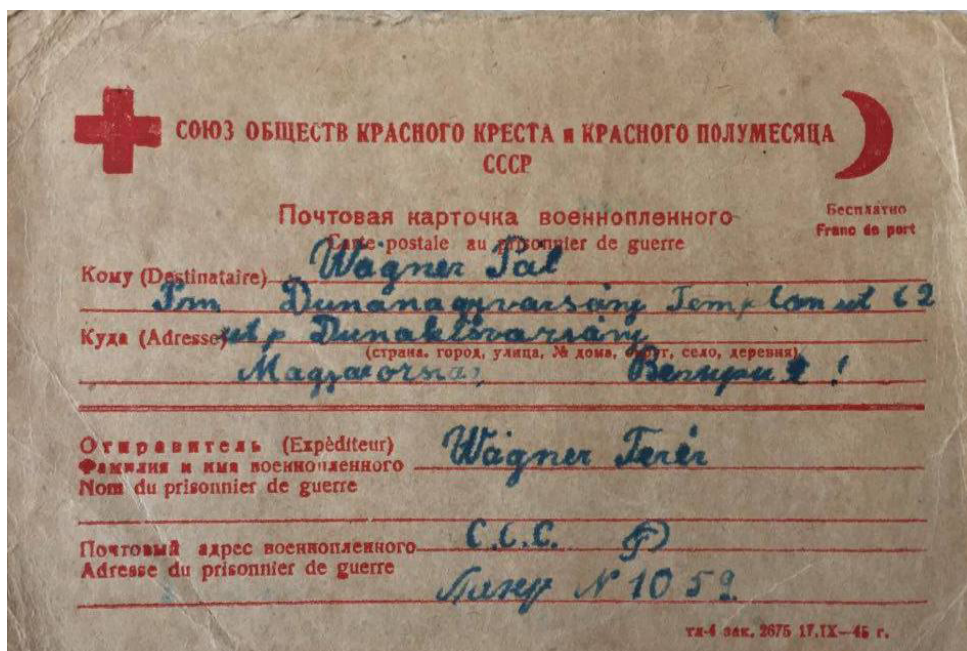 СОЮЗ ОБЩЕСТВ КРАСНОГО КРЕСТА и КРАСНОГО ПОЛУМЕСЯЦА
СССР
Бесплатно
Franc de port
Почтовая карточка военнопленного
Carte postale au prisonnier de guerre
Кому (Destinataire) Wagner Pál
Dunanagyvarsány Templom ut 62
Куда (Adresse) utp Dunakisvarsány
(страна, город, улица, № дома, округ, село, деревня)
Magyarorszag Венгрия!
Отправитель (Expèditeur)
Фамилия и имя военнопленного Wágner
Nom du prisonnier de guerre
Почтовый адрес военнопленного С.С.С. Р
Adresse du prisonnier de guerre
N 1052
тл-4 зак. 2675 17.IX—45 г.